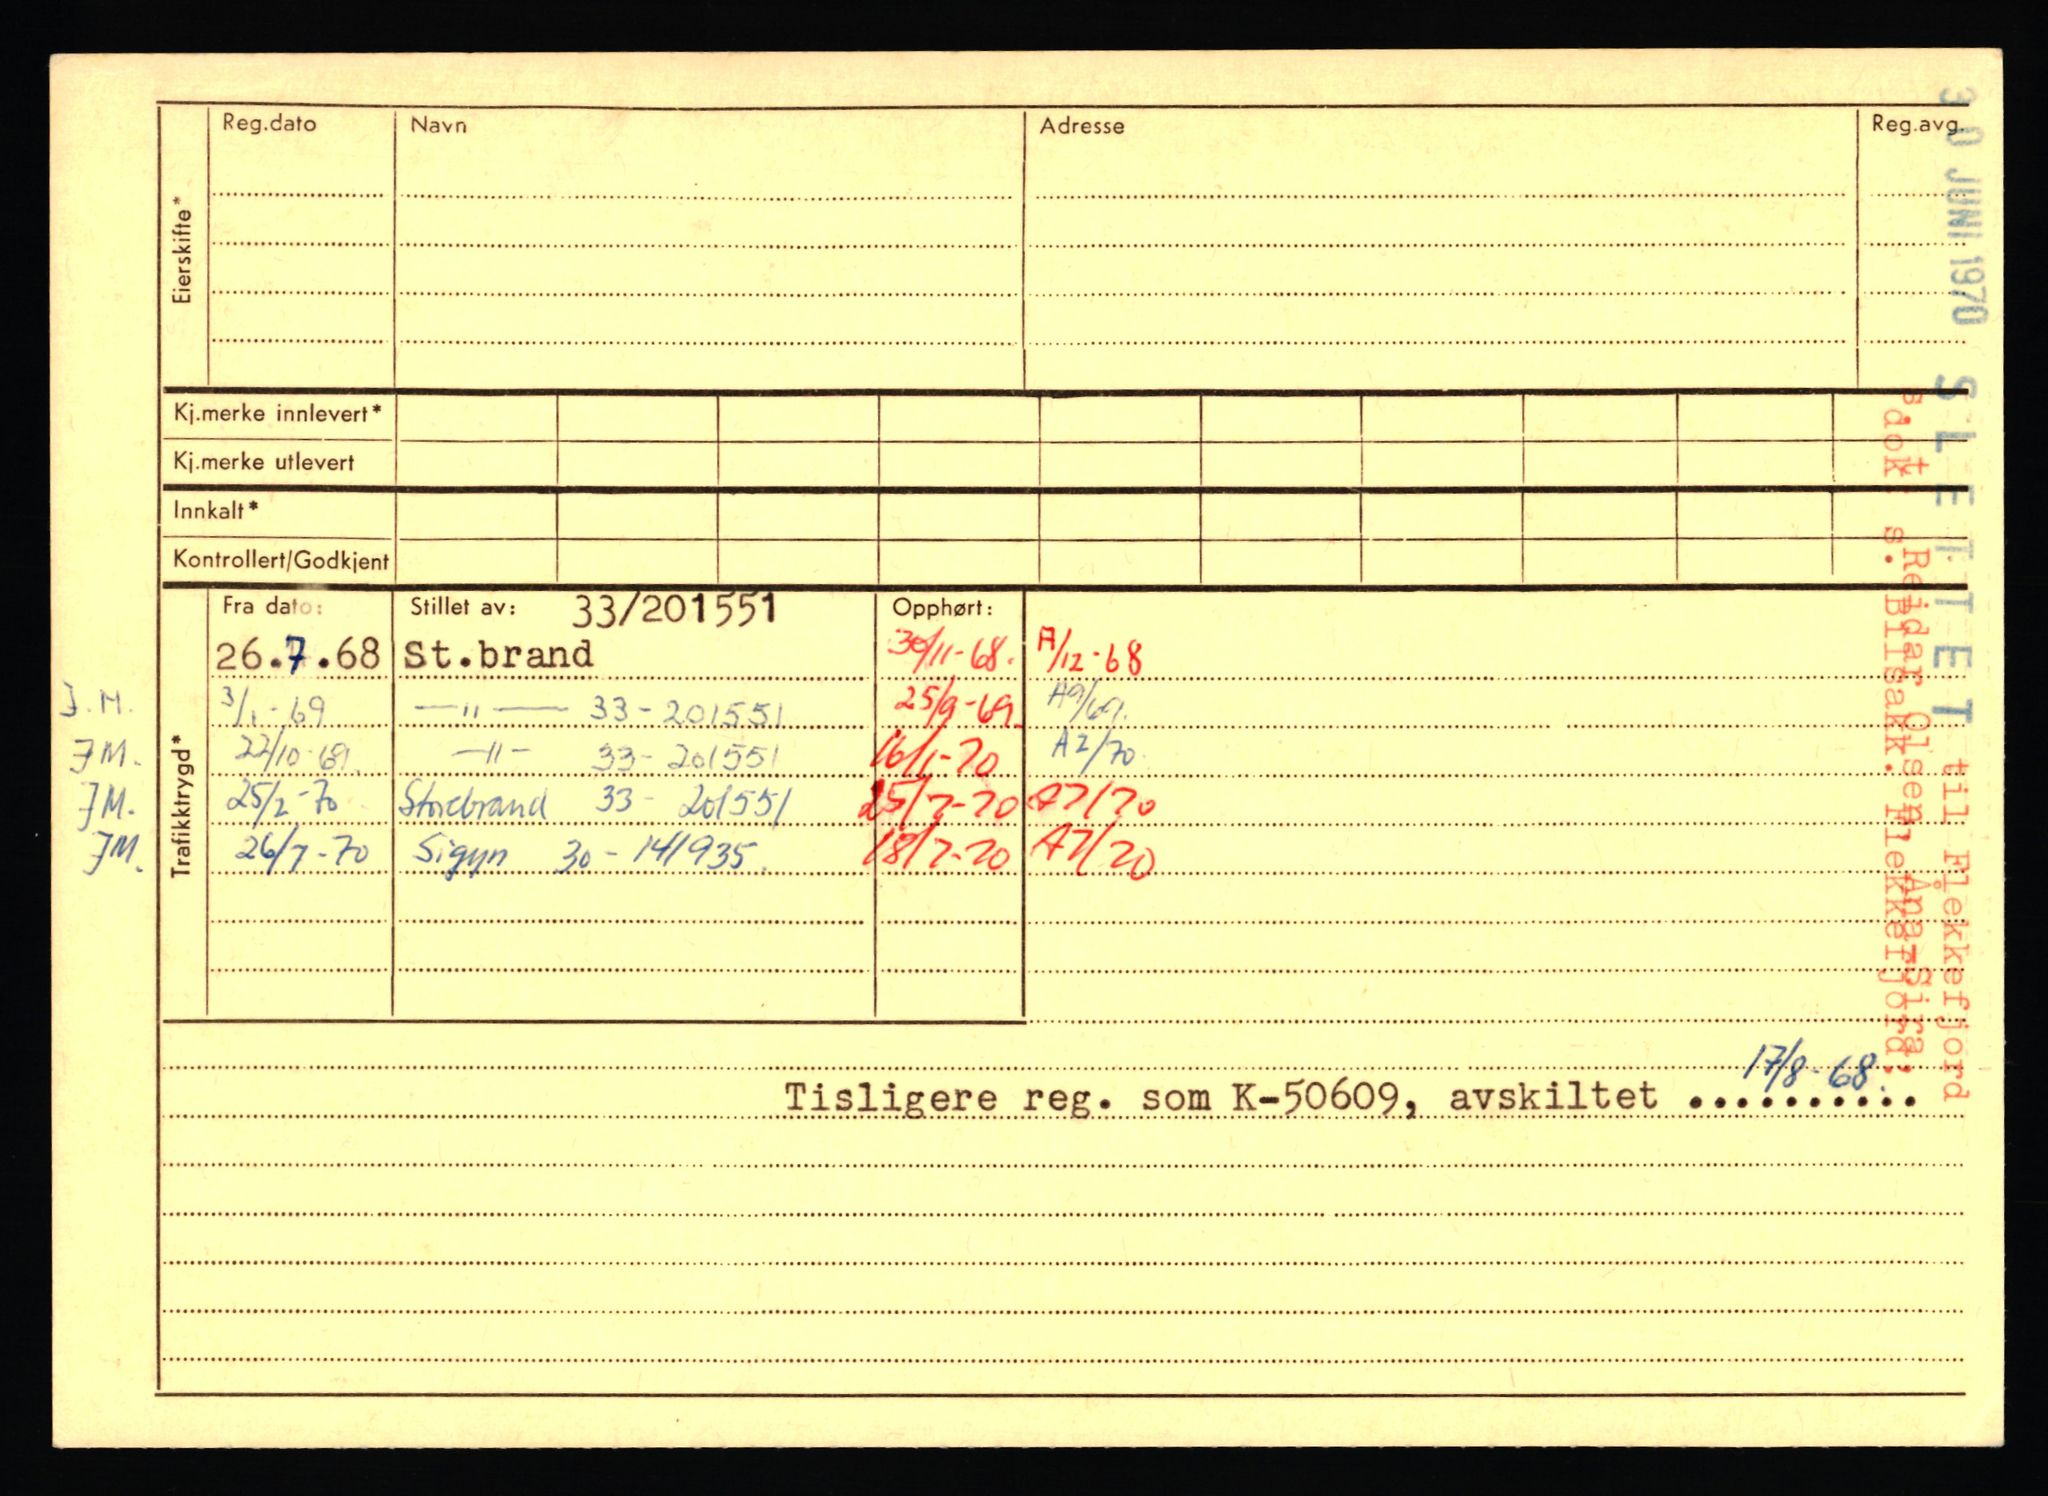 Eierskifte*
Reg.dato Navn Adresse Reg.avg.
Kj.merke innlevert*
Kj.merke utlevert
Innkalt*
Kontrollert/Godkjent
Trafikktrygd*
Fra dato: Stillet av: 33/201551 Opphørt:
26.7.68 St.brand 30/11-68. A/12-68
J.M. 3/1-69 —"— 33-201551 25/9-69 A9/69.
JM. 22/10-69. —"— 33-201551 16/1-70 A2/70.
JM. 25/2-70 Storebrand 33-201551 25/7-70 A7/70
JM. 26/7-70 Sigyn 30-141935. 18/7-70 A7/70
17/8-68.
Tisligere reg. som K-50609, avskiltet ..........
30 JUNI 1970 SLETTET til Flekkefjord
s.t. Reidar Olsen, Åna-Sira.
dok. s. Bilsak. Flekkefjord.